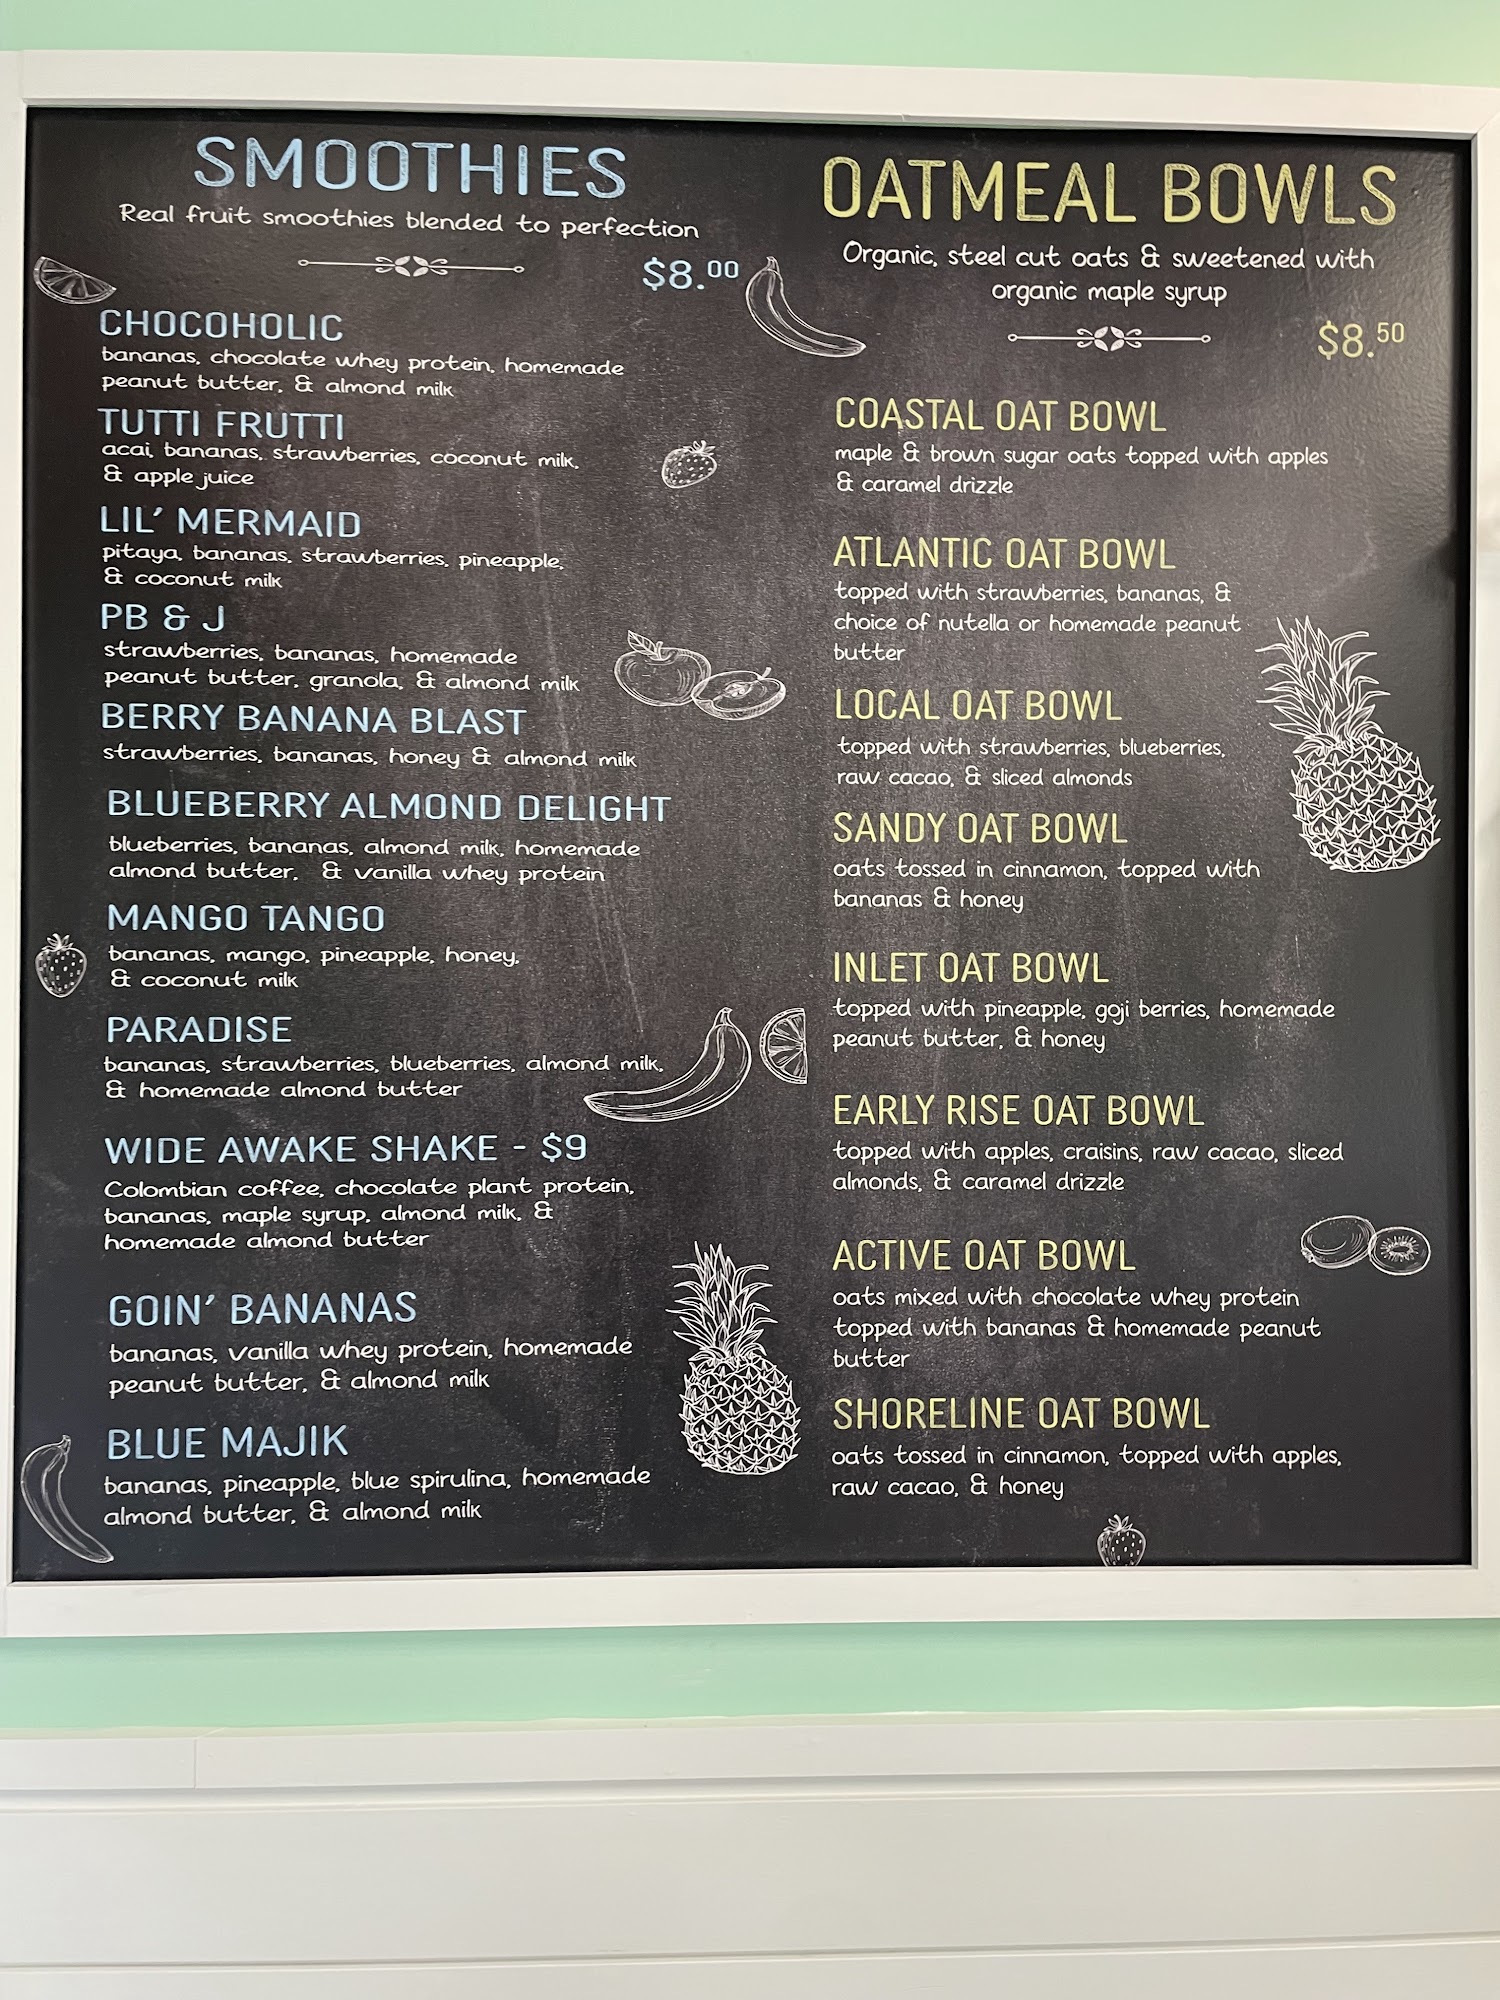 SMOOTHIES
Real fruit smoothies blended to perfection
$8.00
CHOCOHOLIC
bananas, chocolate whey protein, homemade
peanut butter, & almond milk
TUTTI FRUTTI
acai, bananas, strawberries, coconut milk,
& apple juice
LIL' MERMAID
pitaya, bananas, strawberries, pineapple,
& coconut milk
PB & J
strawberries, bananas, homemade
peanut butter, granola, & almond milk
BERRY BANANA BLAST
strawberries, bananas, honey & almond milk
BLUEBERRY ALMOND DELIGHT
blueberries, bananas, almond milk, homemade
almond butter, & vanilla whey protein
MANGO TANGO
bananas, mango, pineapple, honey,
& coconut milk
PARADISE
bananas, strawberries, blueberries, almond milk,
& homemade almond butter
WIDE AWAKE SHAKE - $9
Colombian coffee, chocolate plant protein,
bananas, maple syrup, almond milk, &
homemade almond butter
GOIN' BANANAS
bananas, vanilla whey protein, homemade
peanut butter, & almond milk
BLUE MAJIK
bananas, pineapple, blue spirulina, homemade
almond butter, & almond milk
OATMEAL BOWLS
Organic, steel cut oats & sweetened with
organic maple syrup
$8.50
COASTAL OAT BOWL
maple & brown sugar oats topped with apples
& caramel drizzle
ATLANTIC OAT BOWL
topped with strawberries, bananas, &
choice of nutella or homemade peanut
butter
LOCAL OAT BOWL
topped with strawberries, blueberries,
raw cacao, & sliced almonds
SANDY OAT BOWL
oats tossed in cinnamon, topped with
bananas & honey
INLET OAT BOWL
topped with pineapple, goji berries, homemade
peanut butter, & honey
EARLY RISE OAT BOWL
topped with apples, craisins, raw cacao, sliced
almonds, & caramel drizzle
ACTIVE OAT BOWL
oats mixed with chocolate whey protein
topped with bananas & homemade peanut
butter
SHORELINE OAT BOWL
oats tossed in cinnamon, topped with apples,
raw cacao, & honey